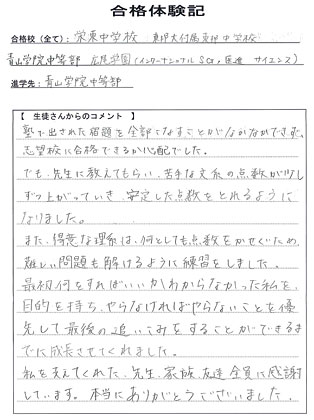 合格体験記
合格校(全て): 栄東中学校 東邦大付属東邦中学校
青山学院中等部 広尾学園(インターナショナルSG、医進サイエンス)
進学先: 青山学院中等部
【 生徒さんからのコメント 】
塾で出された宿題を全部こなすことがなかなかできず、
志望校に合格できるか心配でした。
でも、先生に教えてもらい、苦手な文系の点数が少し
ずつ上がっていき、安定した点数をとれるように
なりました。
また、得意な理系は、何としても点数をかせぐため、
難しい問題も解けるように練習をしました。
最初何をすればいいかわからなかった私を、
目的を持ち、やらなければやらないことを優
先して最後の追いこみをすることができるま
でに成長させてくれました。
私を支えてくれた、先生、家族、友達、全員に感謝
しています。本当にありがとうございました。